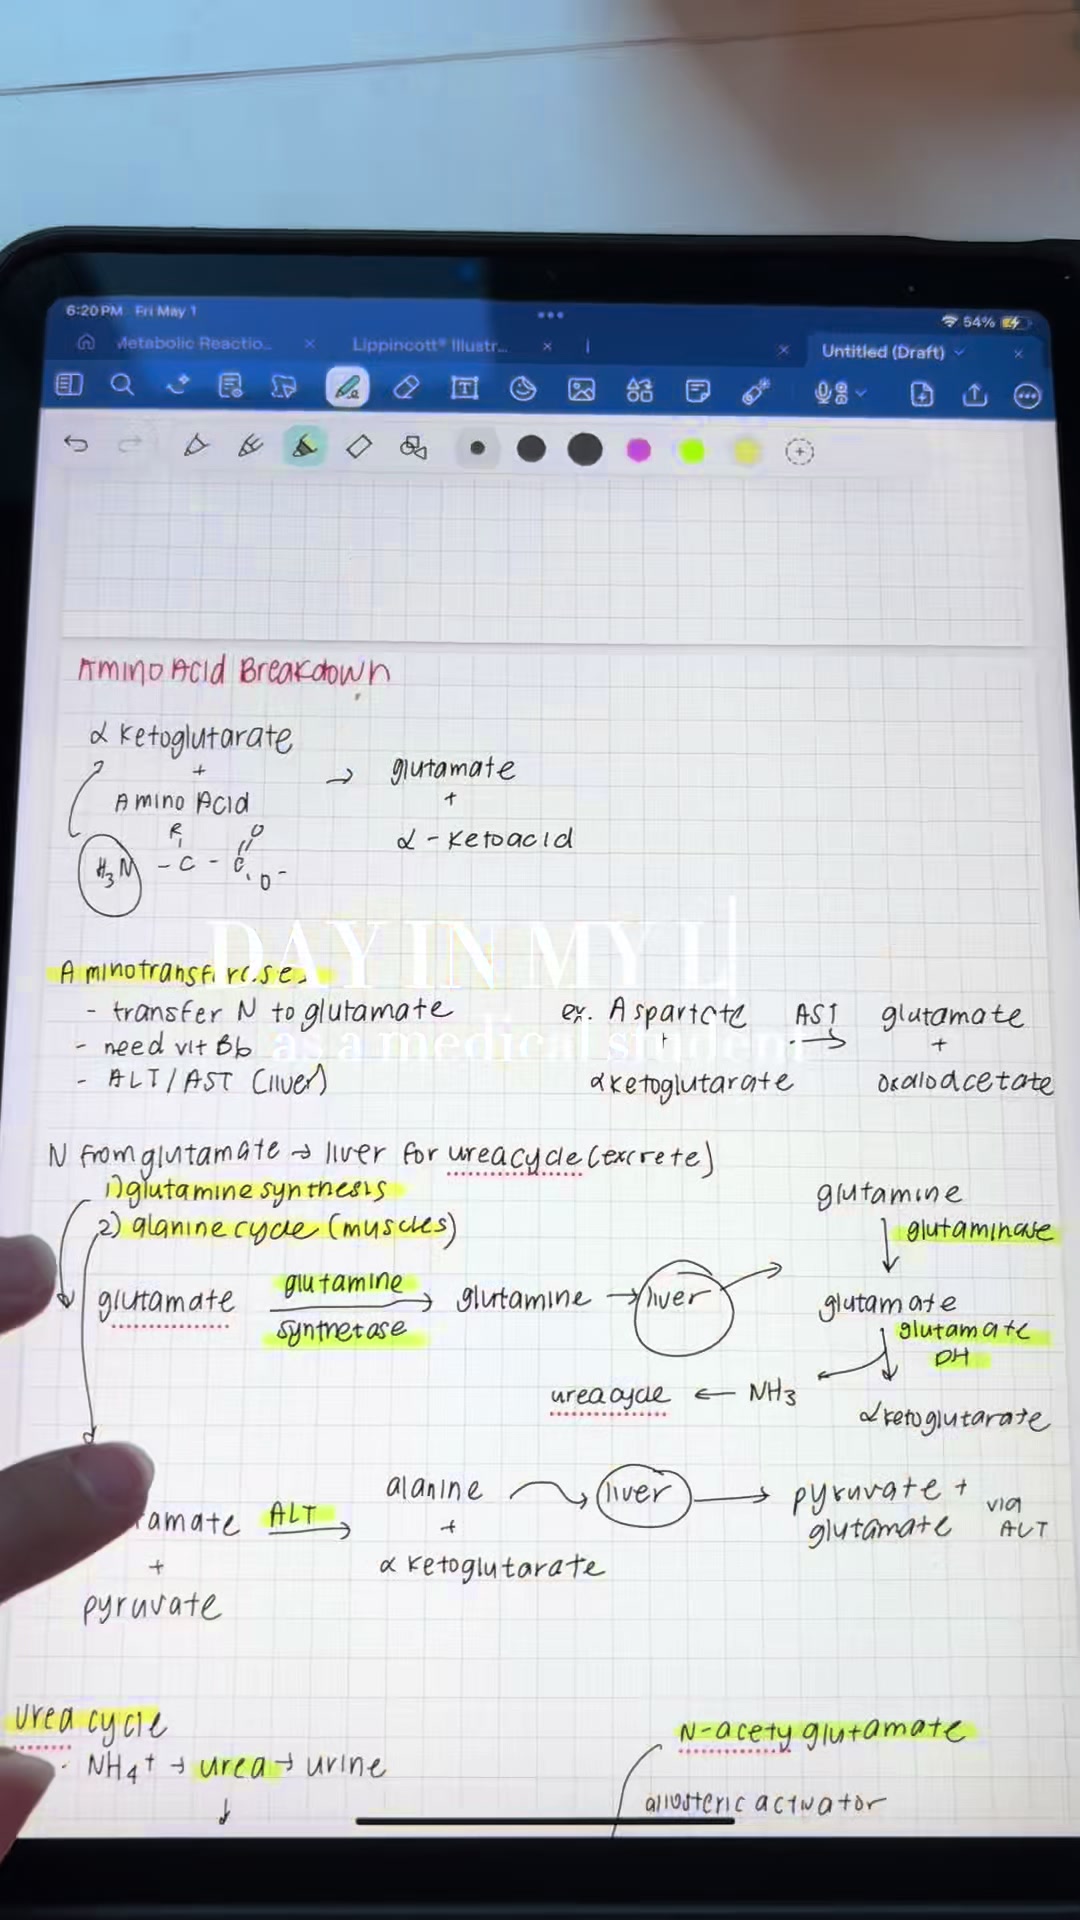 6:20 PM Fri May 1
54%
Metabolic Reactio...
Lippincott® Illustr...
Untitled (Draft)
Amino Acid Breakdown
α ketoglutarate
+
Amino Acid
→ glutamate
+
α - ketoacid
R
H3N - C - C
O
O-
DAY IN MY L
as a medical student
Aminotransferases
- transfer N to glutamate
- need vit B6
- ALT/AST (liver)
ex. Aspartate AST → glutamate
+ +
αketoglutarate oxaloacetate
N from glutamate → liver for urea cycle (excrete)
1) glutamine synthesis
2) alanine cycle (muscles)
glutamate glutamine synthetase → glutamine → liver
glutamine
glutaminase
glutamate
glutamate
DH
urea cycle ← NH3
αketoglutarate
amate ALT → alanine → liver → pyruvate + glutamate via ALT
+ +
pyruvate α ketoglutarate
urea cycle
· NH4+ → urea → urine
N-acety glutamate
allosteric activator